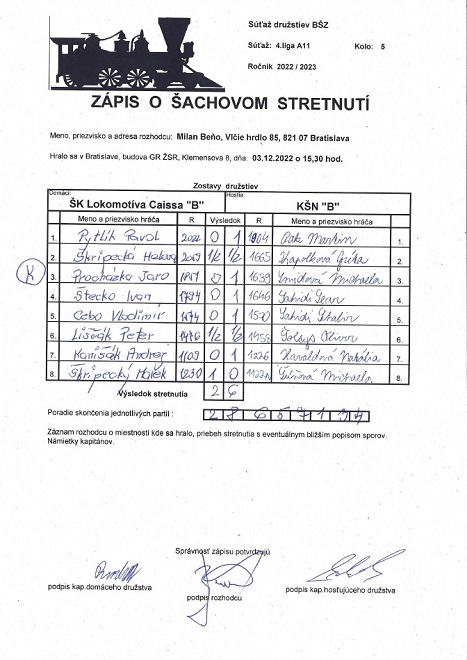 Súťaž družstiev BŠZ
Súťaž: 4.liga A11 Kolo: 5
Ročník 2022 / 2023
ZÁPIS O ŠACHOVOM STRETNUTÍ
Meno, priezvisko a adresa rozhodcu: Milan Beňo, Vlčie hrdlo 85, 821 07 Bratislava
Hralo sa v Bratislave, budova GR ŽSR, Klemensova 8, dňa: 03.12.2022 o 15,30 hod.
Zostavy družstiev
Domáci: Hostia:
ŠK Lokomotíva Caissa "B" KŠN "B"
Meno a priezvisko hráča R Výsledok R Meno a priezvisko hráča
1. Rytlík Pavol 0 1 1904 Martin 1.
2. Škripecká 1/2 1/2 1665 2.
K 3. Procházka Jaro 0 1 1639 Michaela 3.
4. Štecko Ivan 0 1 1646 4.
5. Cebo Vladimír 1474 0 1 5.
6. Liščák Peter 1476 1/2 1/2 1453 Oliver 6.
7. Andrej 1109 0 1 1226 Natália 7.
8. Škripecký 1230 1 0 Michaela 8.
Výsledok stretnutia 2 6
Poradie skončenia jednotlivých partií : 2 8 6 5 7 1 3 4
Záznam rozhodcu o miestnosti kde sa hralo, priebeh stretnutia s eventuálnym bližším popisom sporov.
Námietky kapitánov.
Správnosť zápisu potvrdzujú
podpis kap.domáceho družstva podpis rozhodcu podpis kap.hosťujúceho družstva